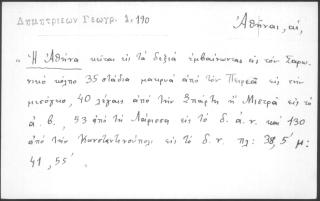 Δημητριέων Γεωγρ. Σ. 190
Ἀθῆναι, αἱ,
"Ἡ Ἀθήνα κεῖται εἰς τὰ δεξιά ἐμβαίνωντας εἰς τὸν Σαρω-
νικὸ κόλπο 35 στάδια μακρυά ἀπὸ τὸν Πειραιᾶ εἰς τὴν
μεσόγειο, 40 λέγαις ἀπὸ τὴν Σπάρτη ἢ Μισιτρᾶ εἰς τὸ
ἀ. β., 53 ἀπὸ τὴ Λάρισσα εἰς τὸ δ. ἀ. ν. καὶ 130
ἀπὸ τὴν Κωνσταντινούπολι εἰς τὸ δ. ν. πλ: 38, 5' μ:
41, 55'.